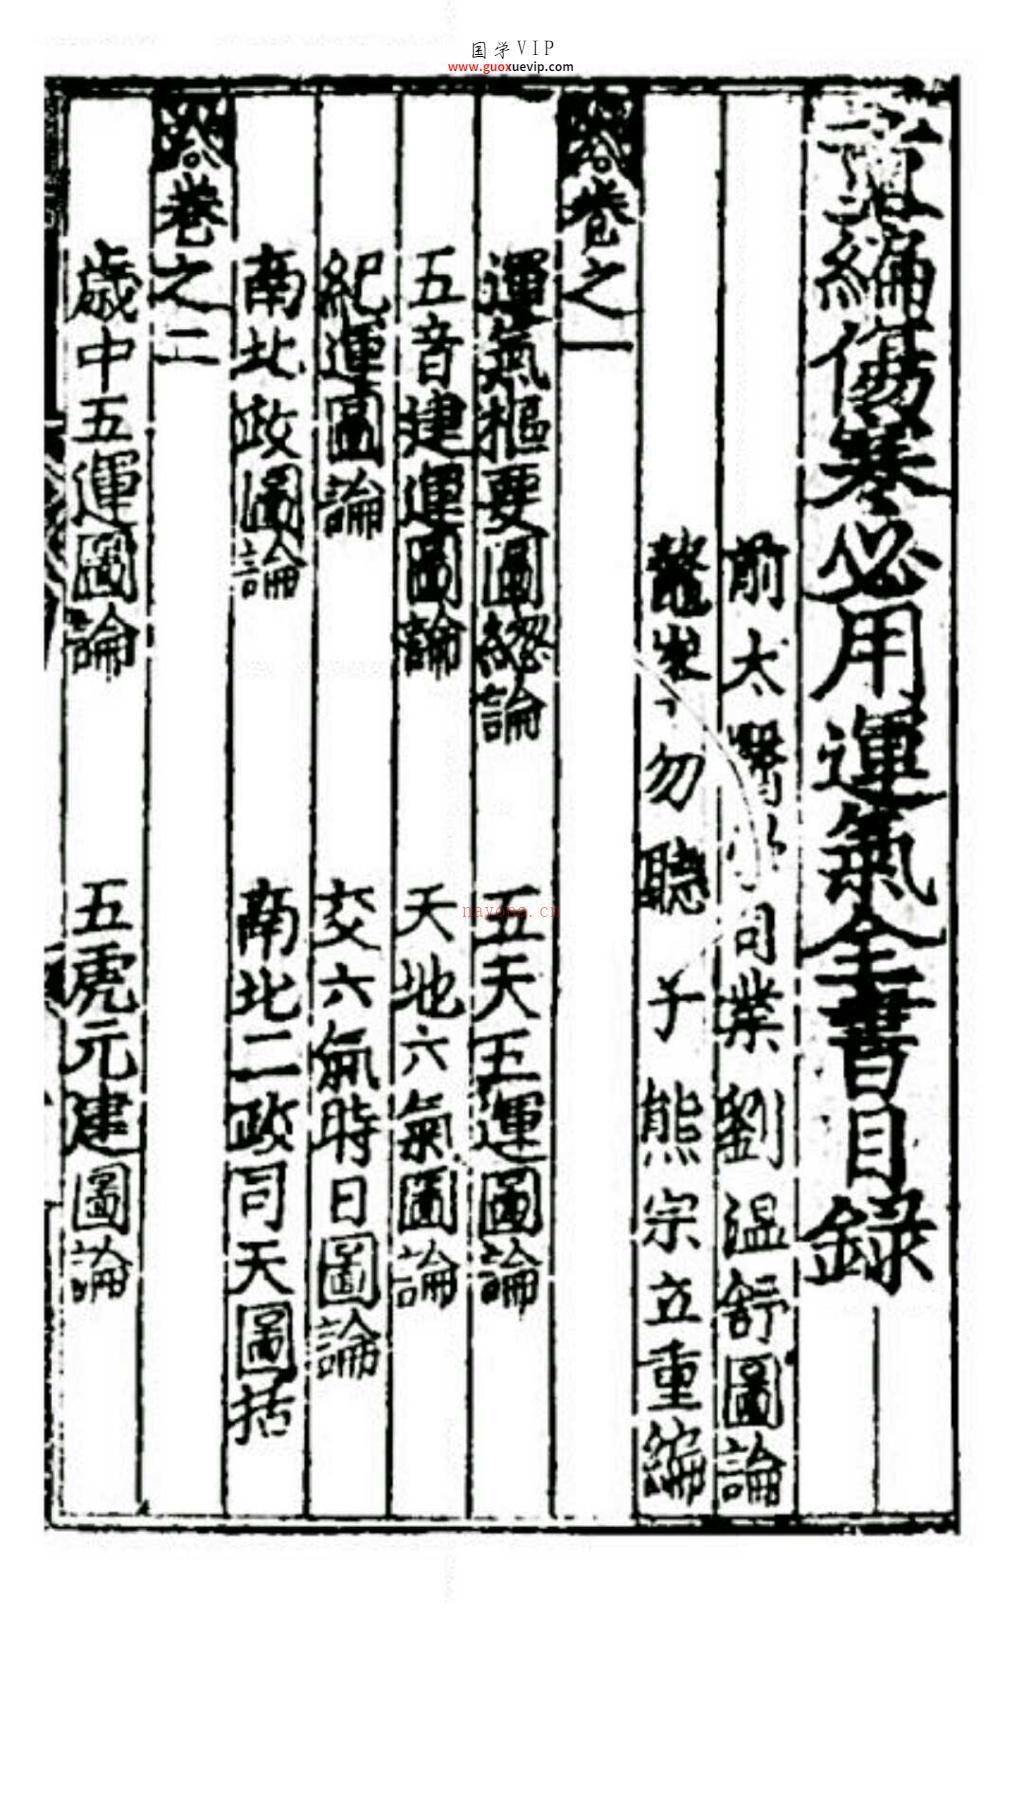 国学VIP
www.guoxuevip.com
編傷寒必用運氣全書目錄
前太醫 司業劉溫舒圖論
鰲峯 勿聽子熊宗立重編
卷之一
運氣樞要圖緫論 五天五運圖論
五音建運圖論 天地六氣圖論
紀運圖論 交六氣時日圖論
南北政圖論 南北二政司天圖括
卷之二
歲中五運圖論 五虎元建圖論
nayona.cn